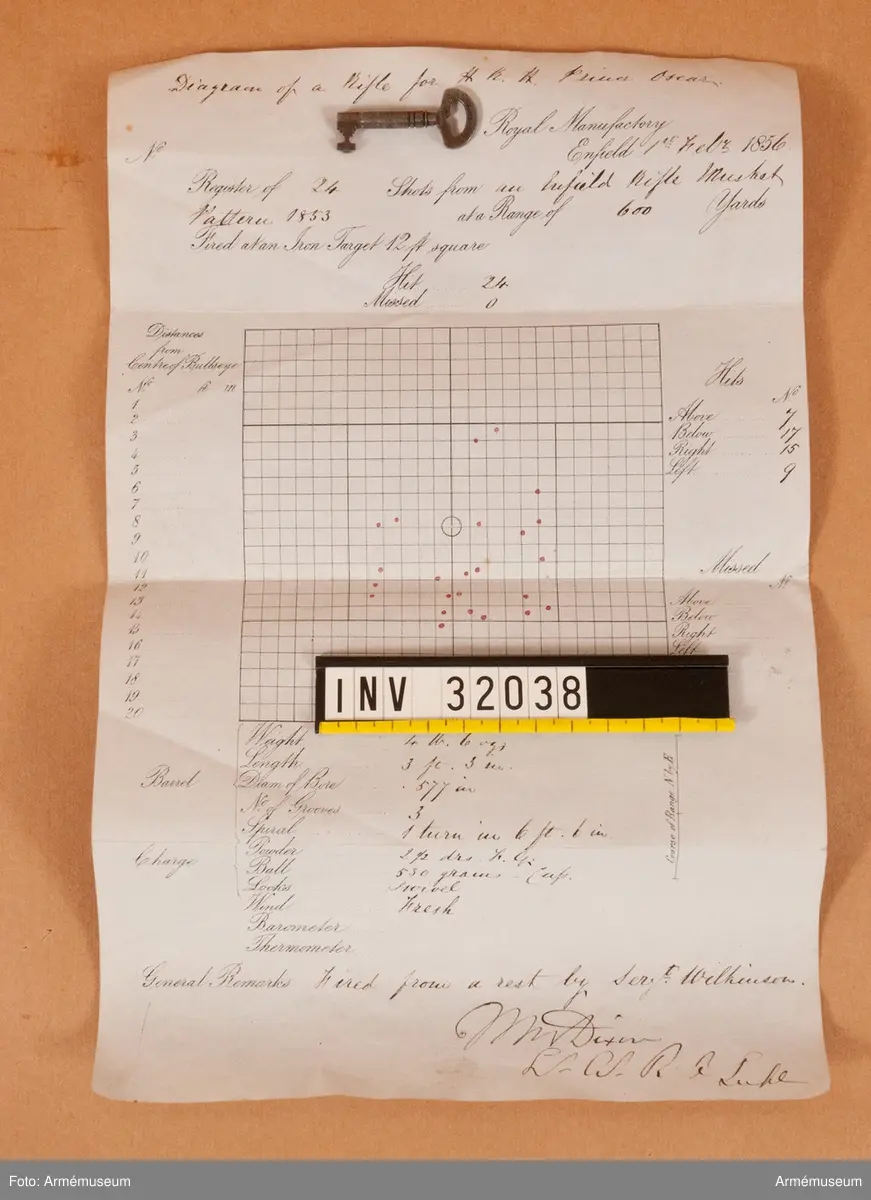 Diagram of a Rifle for H. R. H. Prince Oscar.
Royal Manufactory
Enfield 1st Feby 1856
No
Register of 24 Shots from an Enfield Rifle Musket
Pattern 1853 at a Range of 600 Yards
Fired at an Iron Target 12 ft square
Hit 24
Missed 0
Distances
from
Centre of Bullseye
No ft in
1
2
3
4
5
6
7
8
9
10
11
12
13
14
15
16
17
18
19
20
Hits
No
Above 7
Below 17
Right 15
Left 9
Missed
No
Above
Below
Right
Left
INV 32038
Weight 4 lb. 6 ozs
Length 3 ft. 3 in.
Barrel Diam of Bore .577 in
No of Grooves 3
Spiral 1 turn in 6 ft. 6 in.
Charge Powder 2 1/2 drs. F. G.
Ball 530 grains Cup.
Locks Swivel
Wind Fresh
Barometer
Thermometer
Course of Range
General Remarks Fired from a rest by Sergt. Wilkinson.
Wm Dixon
Lt. Cl. R. A.
Foto: Armémuseum
Armémuseum